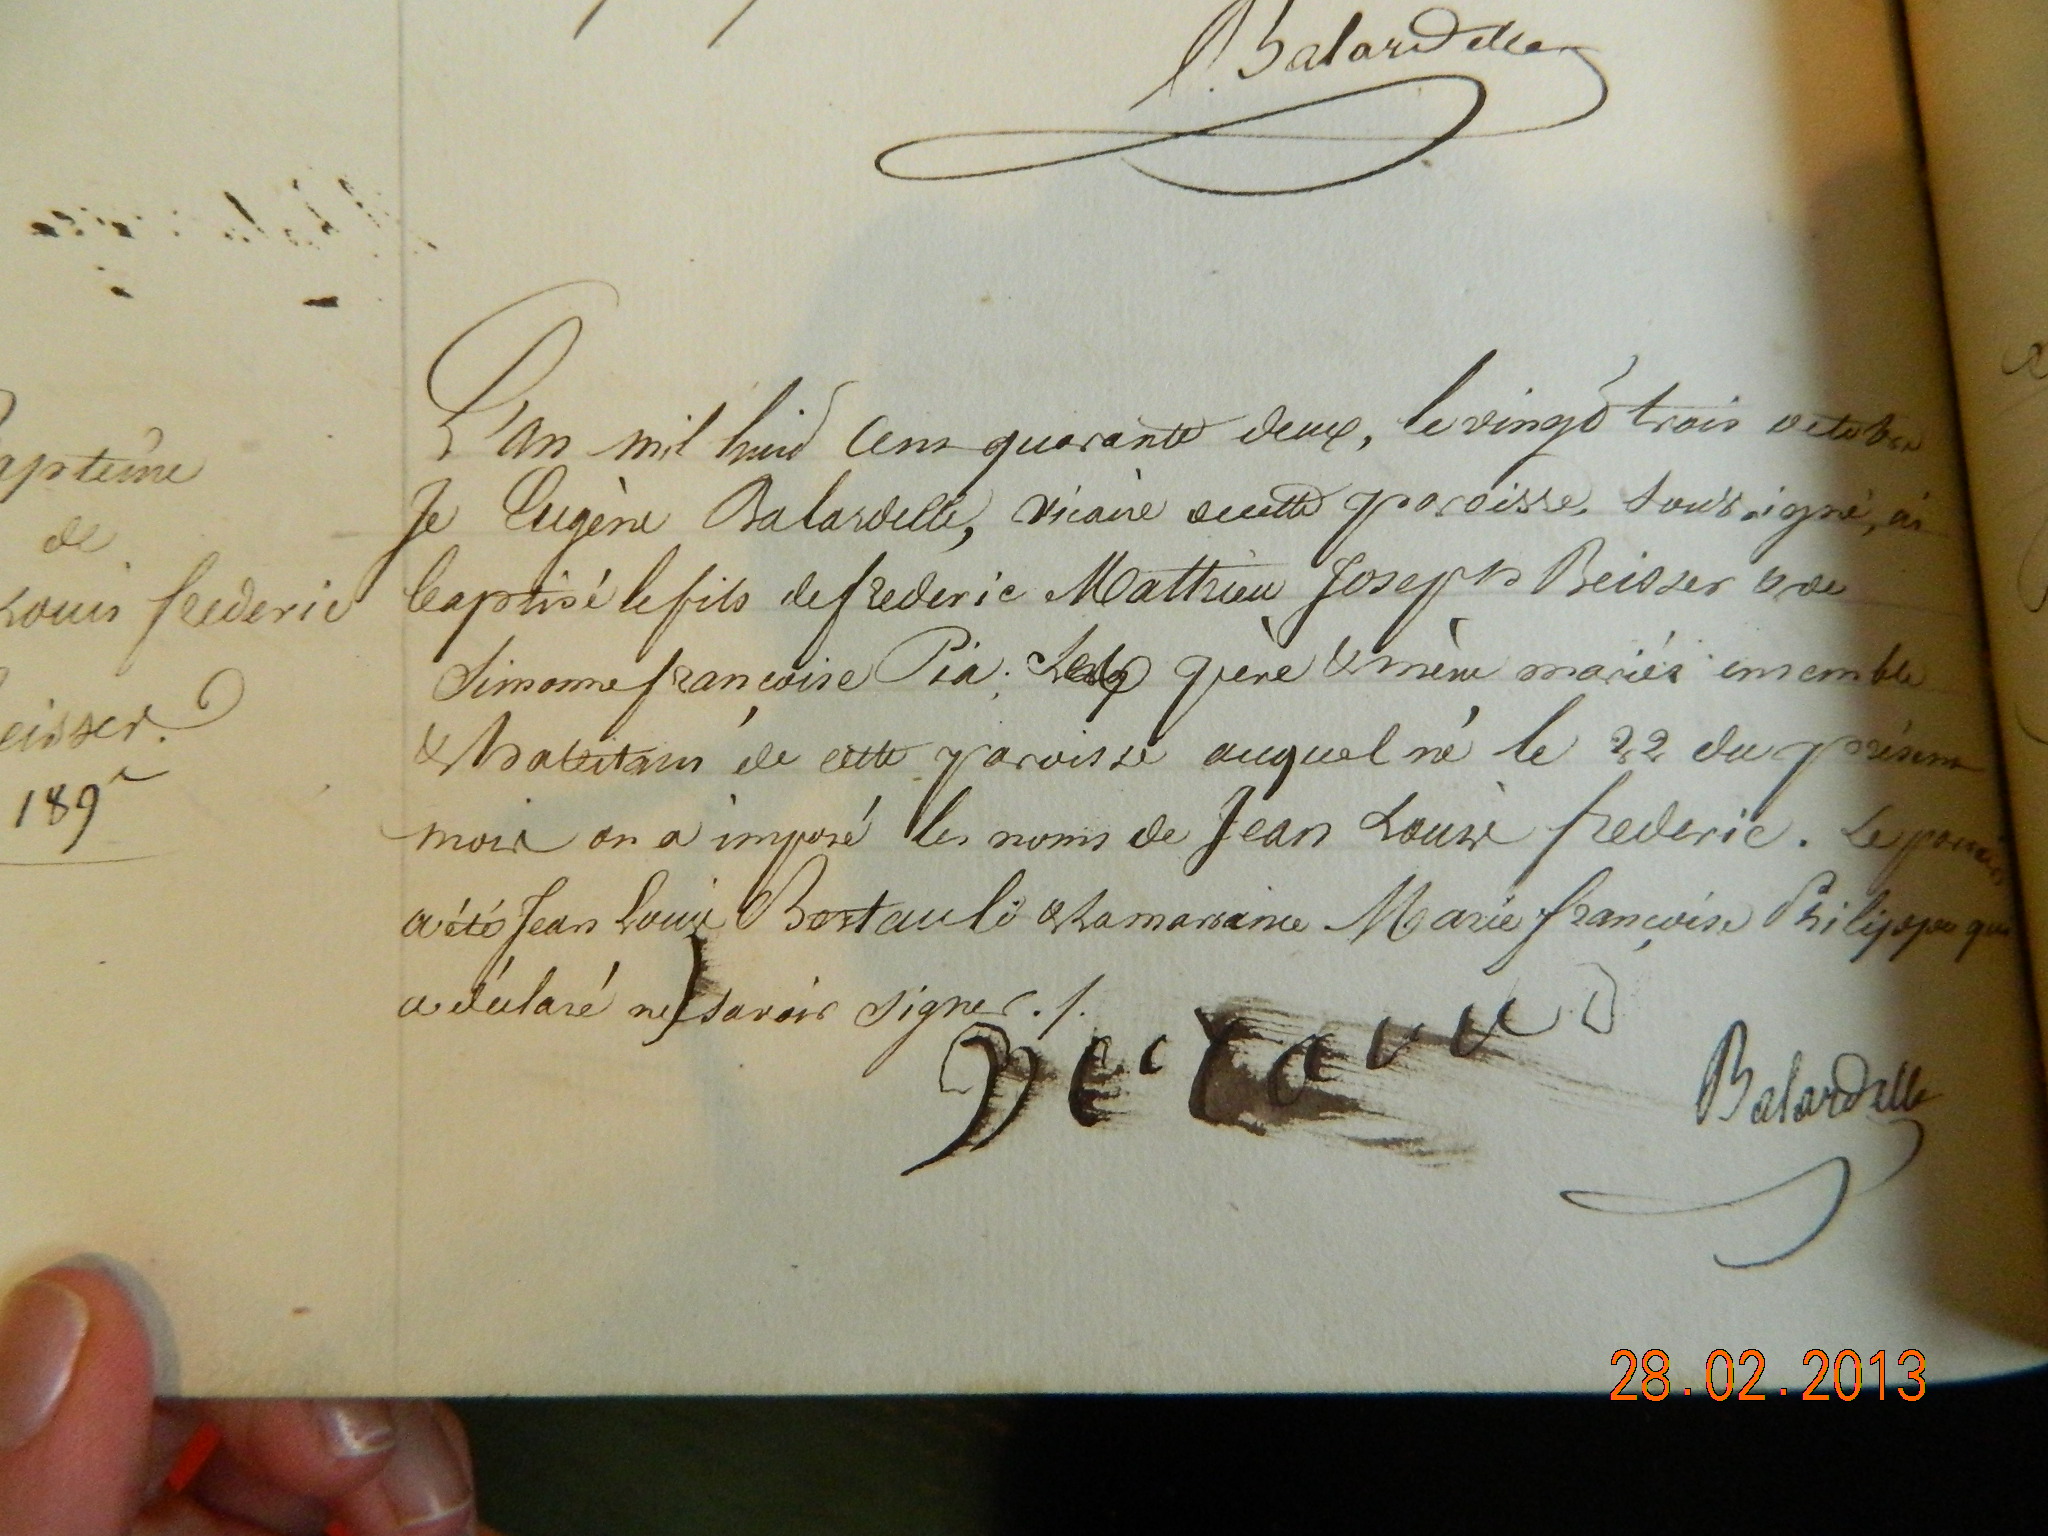 Balardelle
L'an mil huit cent quarante deux, le vingt trois octobre
Je Eugène Balardelle, vicaire de cette paroisse, soussigné, ai
baptisé le fils de frederic Mathieu Joseph Beisser & de
Simonne françoise Pia; père & mère mariés ensemble
& habitans de cette paroisse auquel né le 22 du présent
mois on a imposé les noms de Jean Louis frederic. Le parain
a été Jean Louis & la maraine Marie françoise Philippe qui
a déclaré ne savoir signer./.
Balardelle
aptême
de
Louis frederic
eisser.
189
28.02.2013